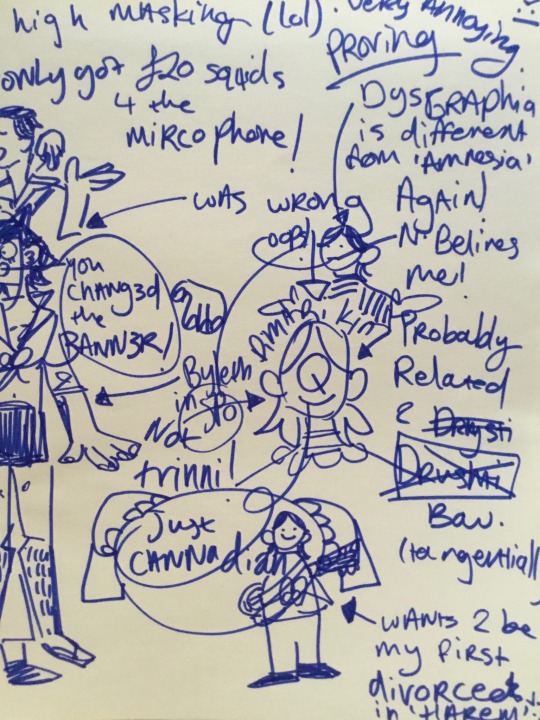 high masking (lol). Very Annoying.
PROVING
only got £20 squids
4 the
MIRCOPHONE!
DYSGRAPHIA
is different
from 'Amnesia'
Again!
was wrong
oops!
N. Belives
me!
YOU
CHANG3d
the
BANN3R!
Probably
Related
2
Bav.
(tangentially
in
Not
trinni!
Just
CANNAdian
WANTS 2 be
my first
divorcee
in 'HAREM'